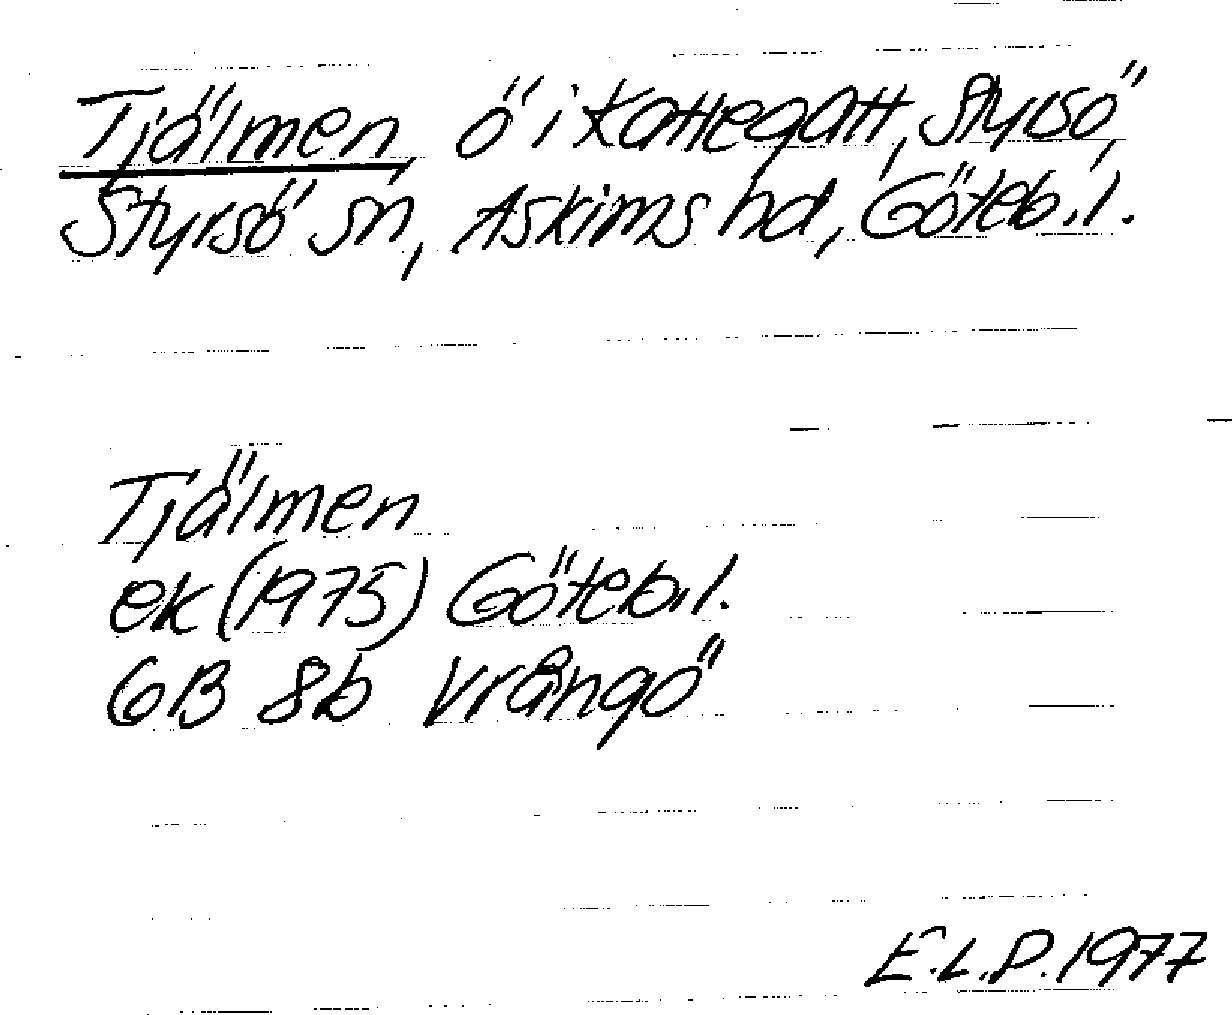 Tjälmen, ö i Kattegatt, Styrsö,
Styrsö sn, Askims hd, Göteb.l.
Tjälmen
ek (1975) Göteb.l.
6B 8b Vrångö
E.L.P. 1977